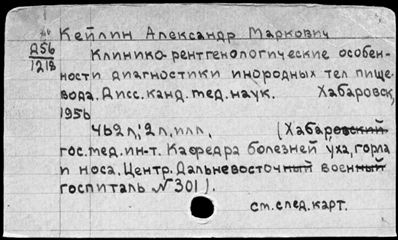 Кейлин Александр Маркович
Д56
1218
Клинико-рентгенологические особен-
ности диагностики инородных тел пище-
вода. Дисс. канд. мед. наук. Хабаровск,
1956
462 л; 2 л, илл, (Хабаровский
гос. мед. ин-т. Кафедра болезней уха, горла
и носа. Центр. Дальневосточный военный
госпиталь № 301).
см. след. карт.